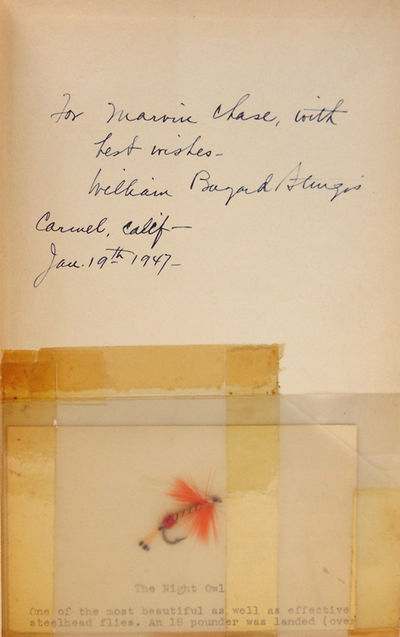 For Marvin Chase, with
best wishes-
William Bayard Sturgis
Carmel, Calif-
Jan. 19th 1947-
The Night Owl
One of the most beautiful as well as effective
steelhead flies. An 18 pounder was landed (over